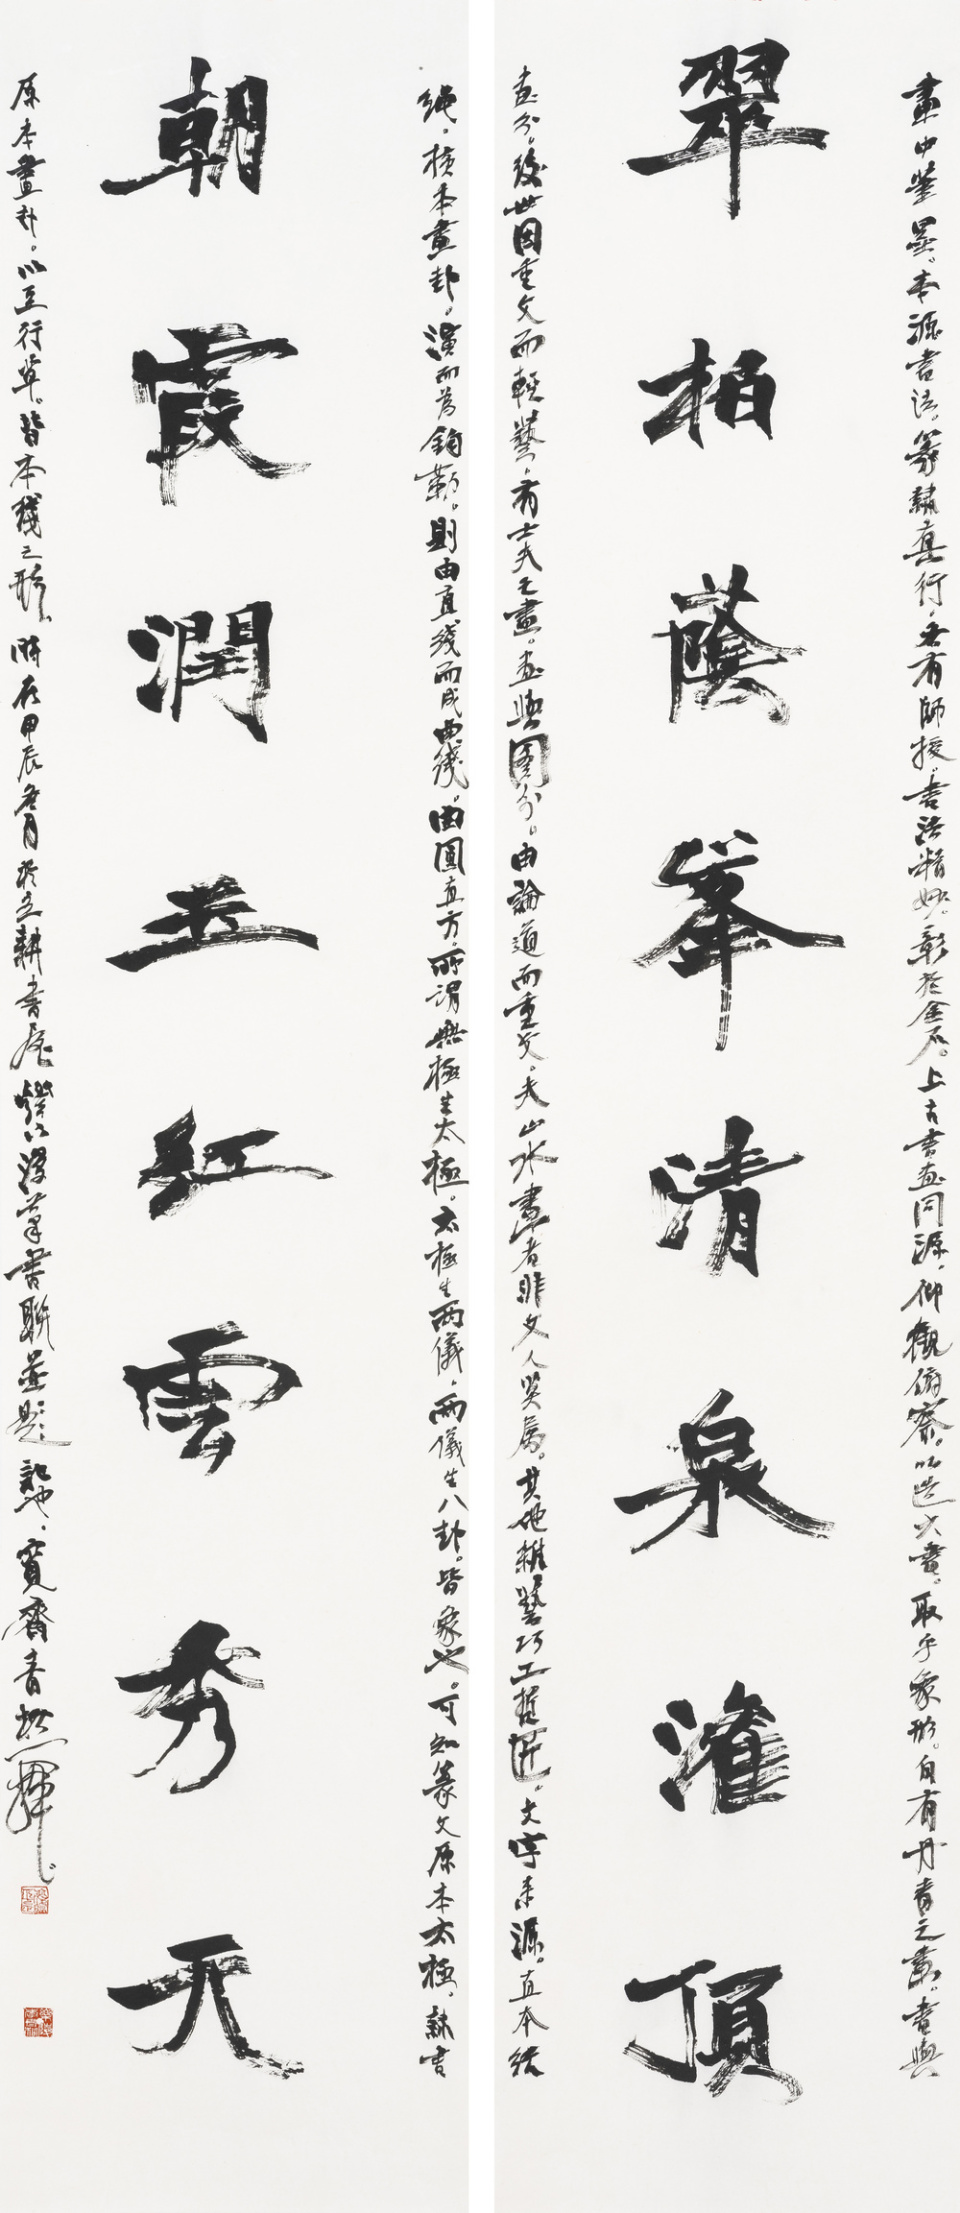 畫中筆墨。本源書法。篆隸真行。各有師授。書法精妙。彰於金石。上古書画同源。仰觀俯察。以造火書。取乎象形。自有丹青之義。書與
翠柏蔭峯清泉灌頂
画分。後世因重文而輕藝。有士夫之畫。画與圖分。由論道而重文。夫山水畫者非文人莫屬。其他雜藝巧工哲匠。文字来源。直本结
绳。横本畫卦。演而為鉤勒。則由直线而成曲线。曲圓直方。所謂無極生太極。太極生两儀。两儀生八卦。皆象也。可知篆文原本太極。隸書
朝霞潤玉紅雲秀天
原本畫卦。以至行草。皆本綫之形。時在甲辰冬月於立耕書屋 以漫筆書聯並題記也。寬齋青